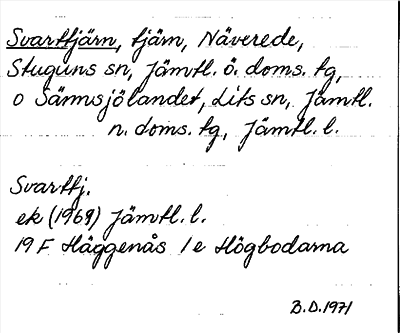 Svarttjärn, tjärn, Näverede,
Stuguns sn, Jämtl. ö. doms. tg,
o Sännsjölandet, Lits sn, Jämtl.
n. doms. tg, Jämtl. l.
Svarttj.
ek (1969) Jämtl. l.
19 F Häggenås 1e Högbodarna
B.D. 1971